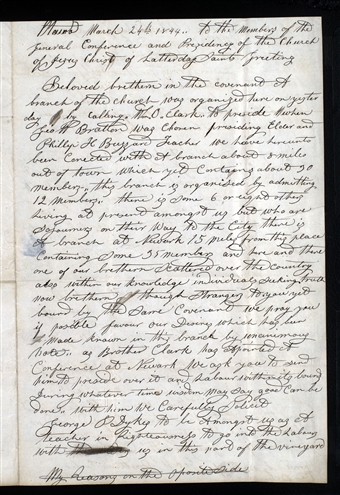 March 24th 1844.. to the Members of the
General Conference and Presidency of the Church
of Jesus Christ of Latterday Saints Greeting
Beloved brethern in the covenant A
branch of the Church was organized here on yister
day by calling Wm O. Clark to preside when
Geo W Bratton was Chosen presiding Elder and
Phillip H Buzzard Teacher We have hereunto
been Conected with A branch about 8 miles
out of town which yet Contains about 30
members. this branch is organised by admitting
12 Members. there is some 6 or eight others
living at present amongst us but who are
Sojourners on their way to the City there is
A branch at Newark 15 miles from this place
Containing Some 35 members and here and there
one of our brethern Scattered over the Country
also within our knowledge individuals Seeking truth
now brethern though Strangers to you yet
bound by the Same Covenant we pray you
if posible favour our Desires which has been
Made known in this branch by unanimous
Vote. as Brother Clark has apointed A
Conference at Newark We ask you to send
him to preside over it and labour with us
During whatever time wisdom may say good Can be
done. with him We Carefully Solicit
George P Dykes to be Amongst us as A
teacher in Righteousness to go into the labour
with us in this part of the vineyard
My Reasons on the oposite Side